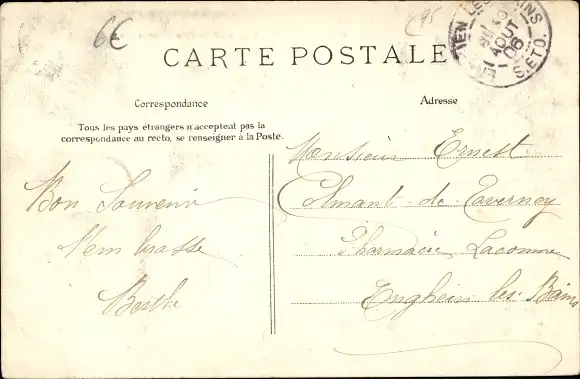 6€
CARTE POSTALE
AOUT
06
S. ET O.
Correspondance
Adresse
Tous les pays étrangers n'acceptent pas la
correspondance au recto, se renseigner à la Poste.
Bon Souvenir
Berthe
Monsieur Ernest
Colmant-de-Tavernay
Pharmacie Lacomme
Enghein les Bains